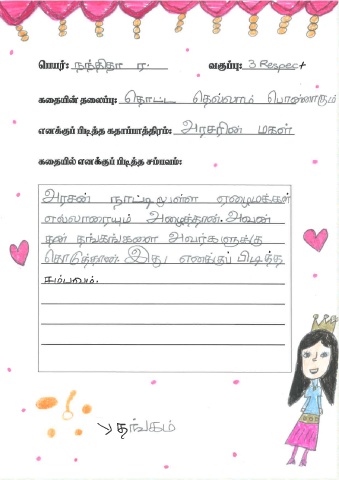 பெயர்: நந்திதா ர. வகுப்பு: 3 Respect
கதையின் தலைப்பு: தொட்ட தெல்லாம் பொன்னாரும்
எனக்குப் பிடித்த கதாப்பாத்திரம்: அரசரின் மகள்
கதையில் எனக்குப் பிடித்த சம்பவம்:
அரசன் நாட்டிலுள்ள ஏழைமக்கள்
எல்லாரையும் அழைத்தான். அவன்
தன் தங்கங்களை அவர்களுக்கு
கொடுத்தான். இது எனக்குப் பிடித்த
சம்பவம்.
தங்கம்